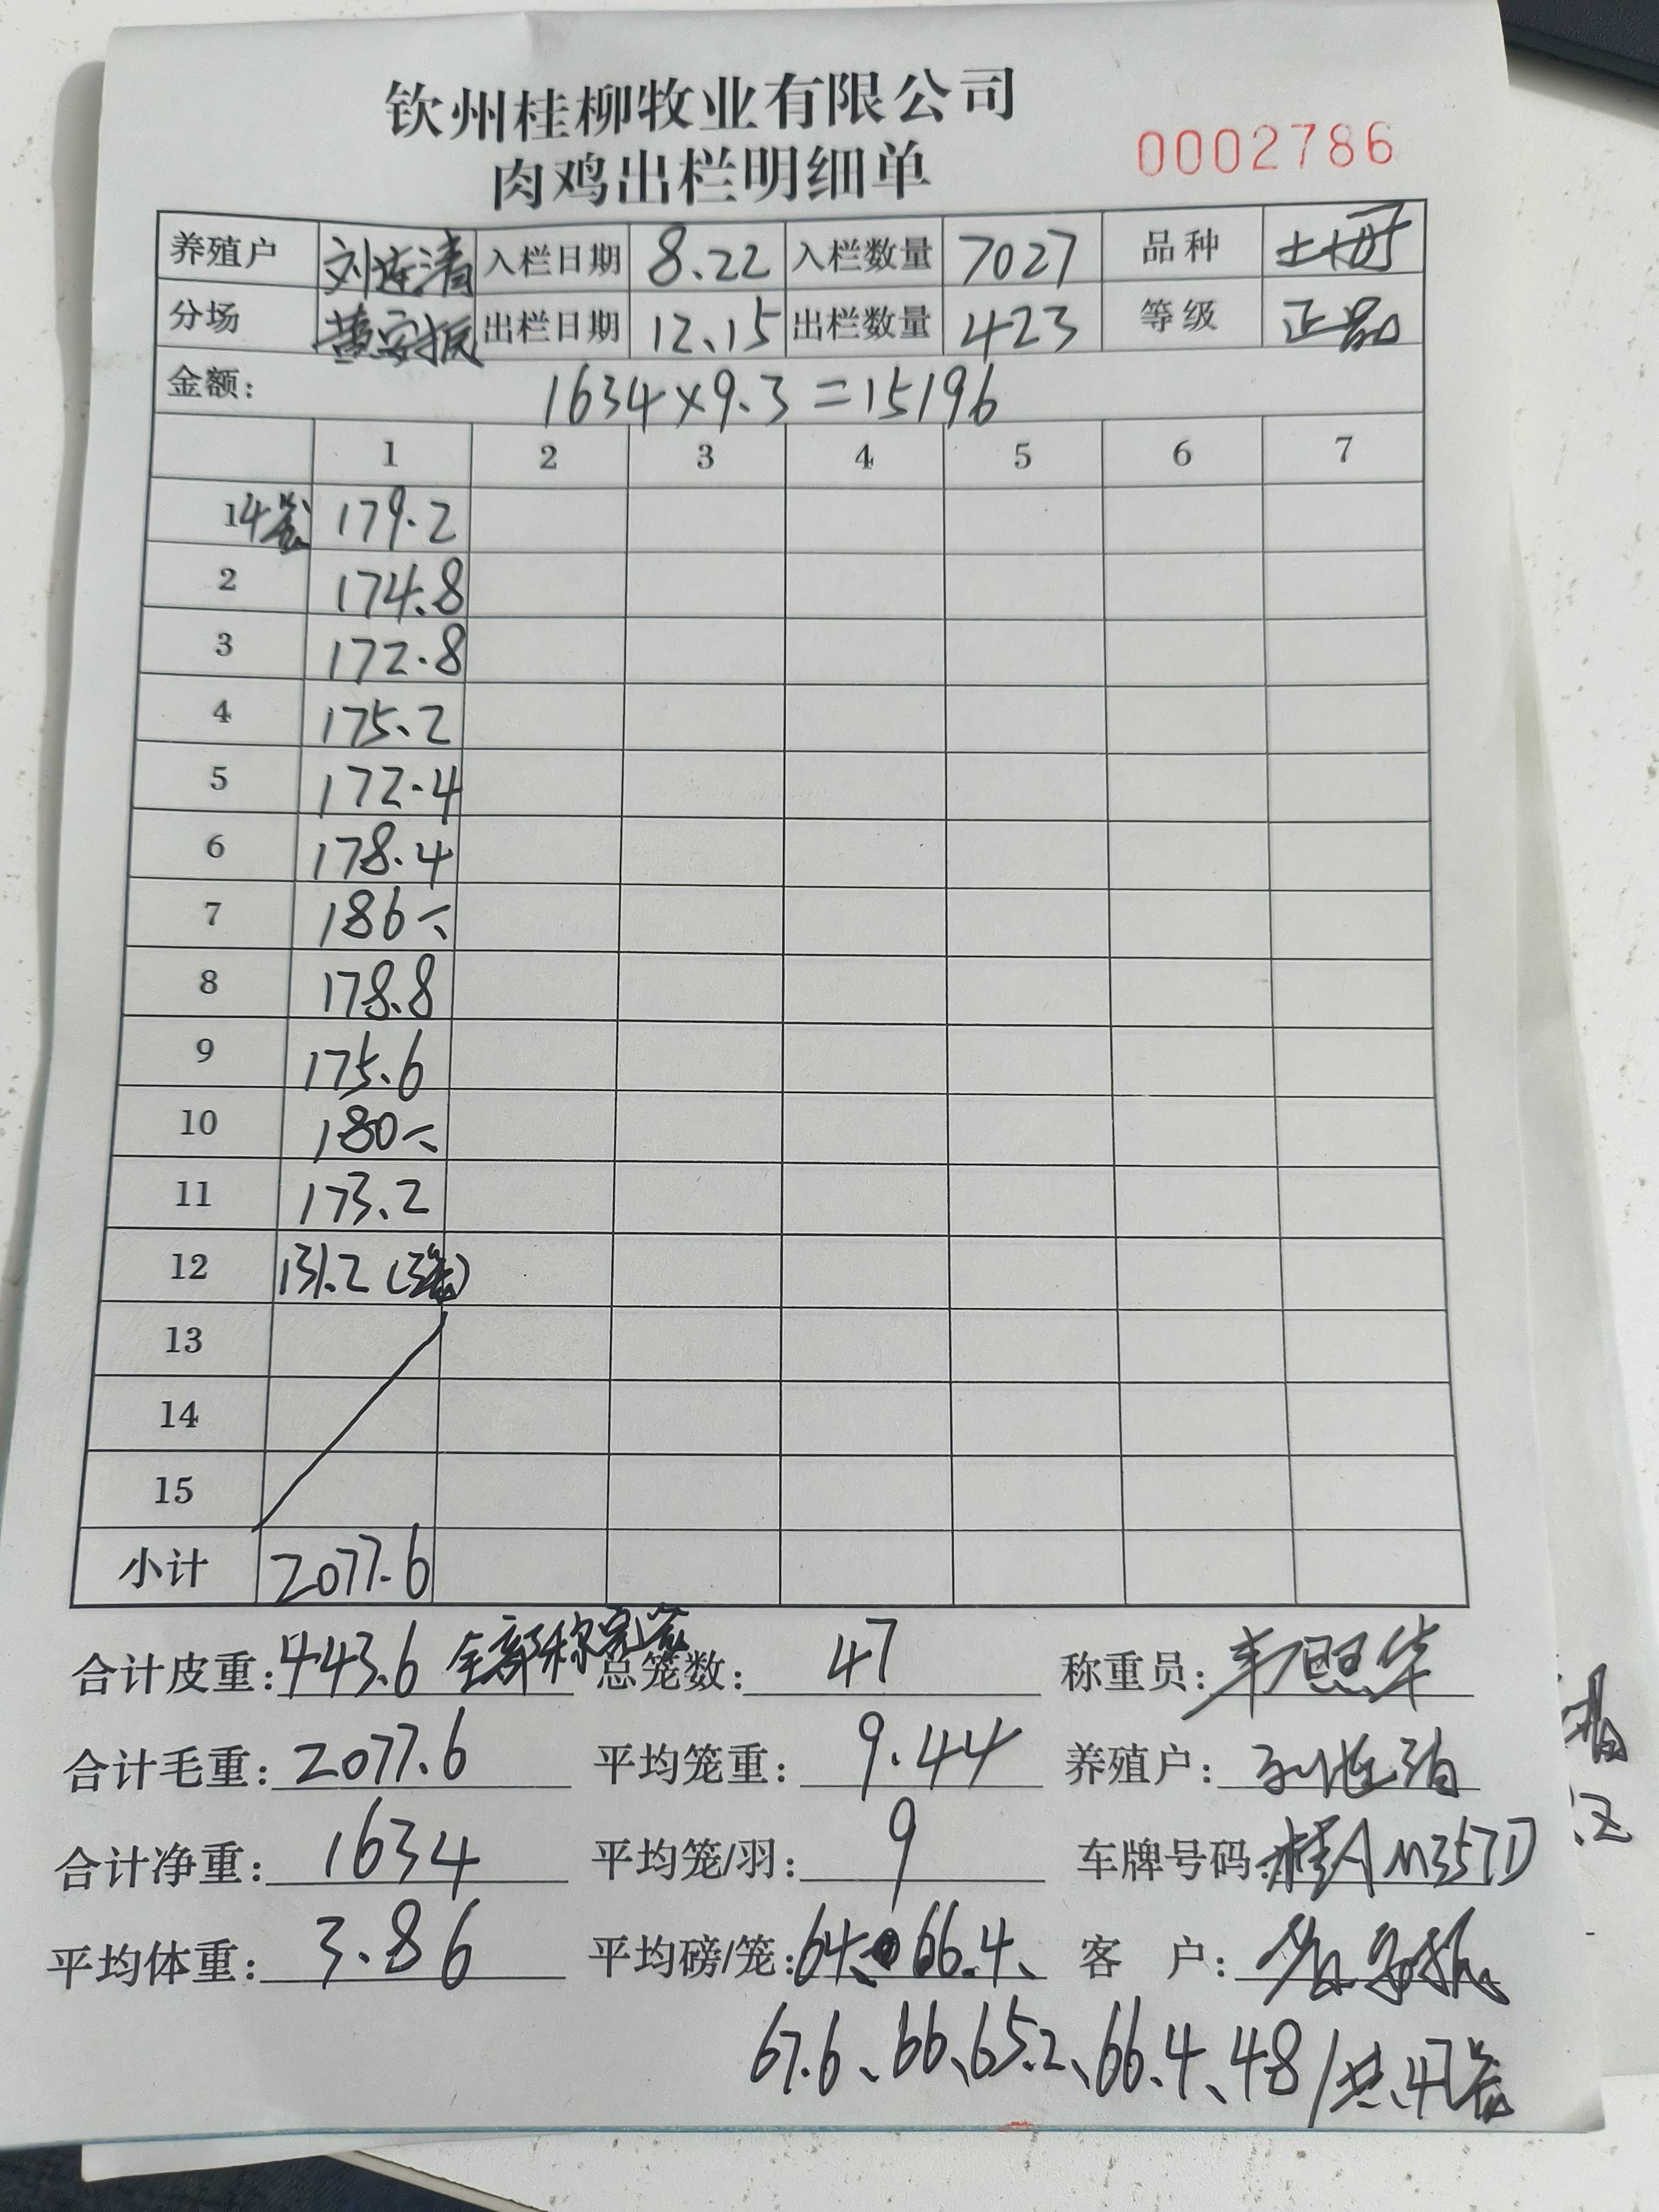 钦州桂柳牧业有限公司
肉鸡出栏明细单
0002786
养殖户 刘连清 入栏日期 8.22 入栏数量 7027 品种 土
分场 黄安振 出栏日期 12.15 出栏数量 423 等级 正品
金额: 1634×9.3=15196
1 2 3 4 5 6 7
1 4笼 179.2
2 174.8
3 172.8
4 175.2
5 172.4
6 178.4
7 186
8 178.8
9 175.6
10 180
11 173.2
12 131.2(3笼)
13
14
15
小计 2077.6
合计皮重: 443.6 全部称完笼 总笼数: 47 称重员: 照华
合计毛重: 2077.6 平均笼重: 9.44 养殖户: 刘连清
合计净重: 1634 平均笼/羽: 9 车牌号码: 桂AM357D
平均体重: 3.86 平均磅/笼: 64、66.4、 客 户: 黄安振
67.6、66、65.2、66.4、48/共47笼